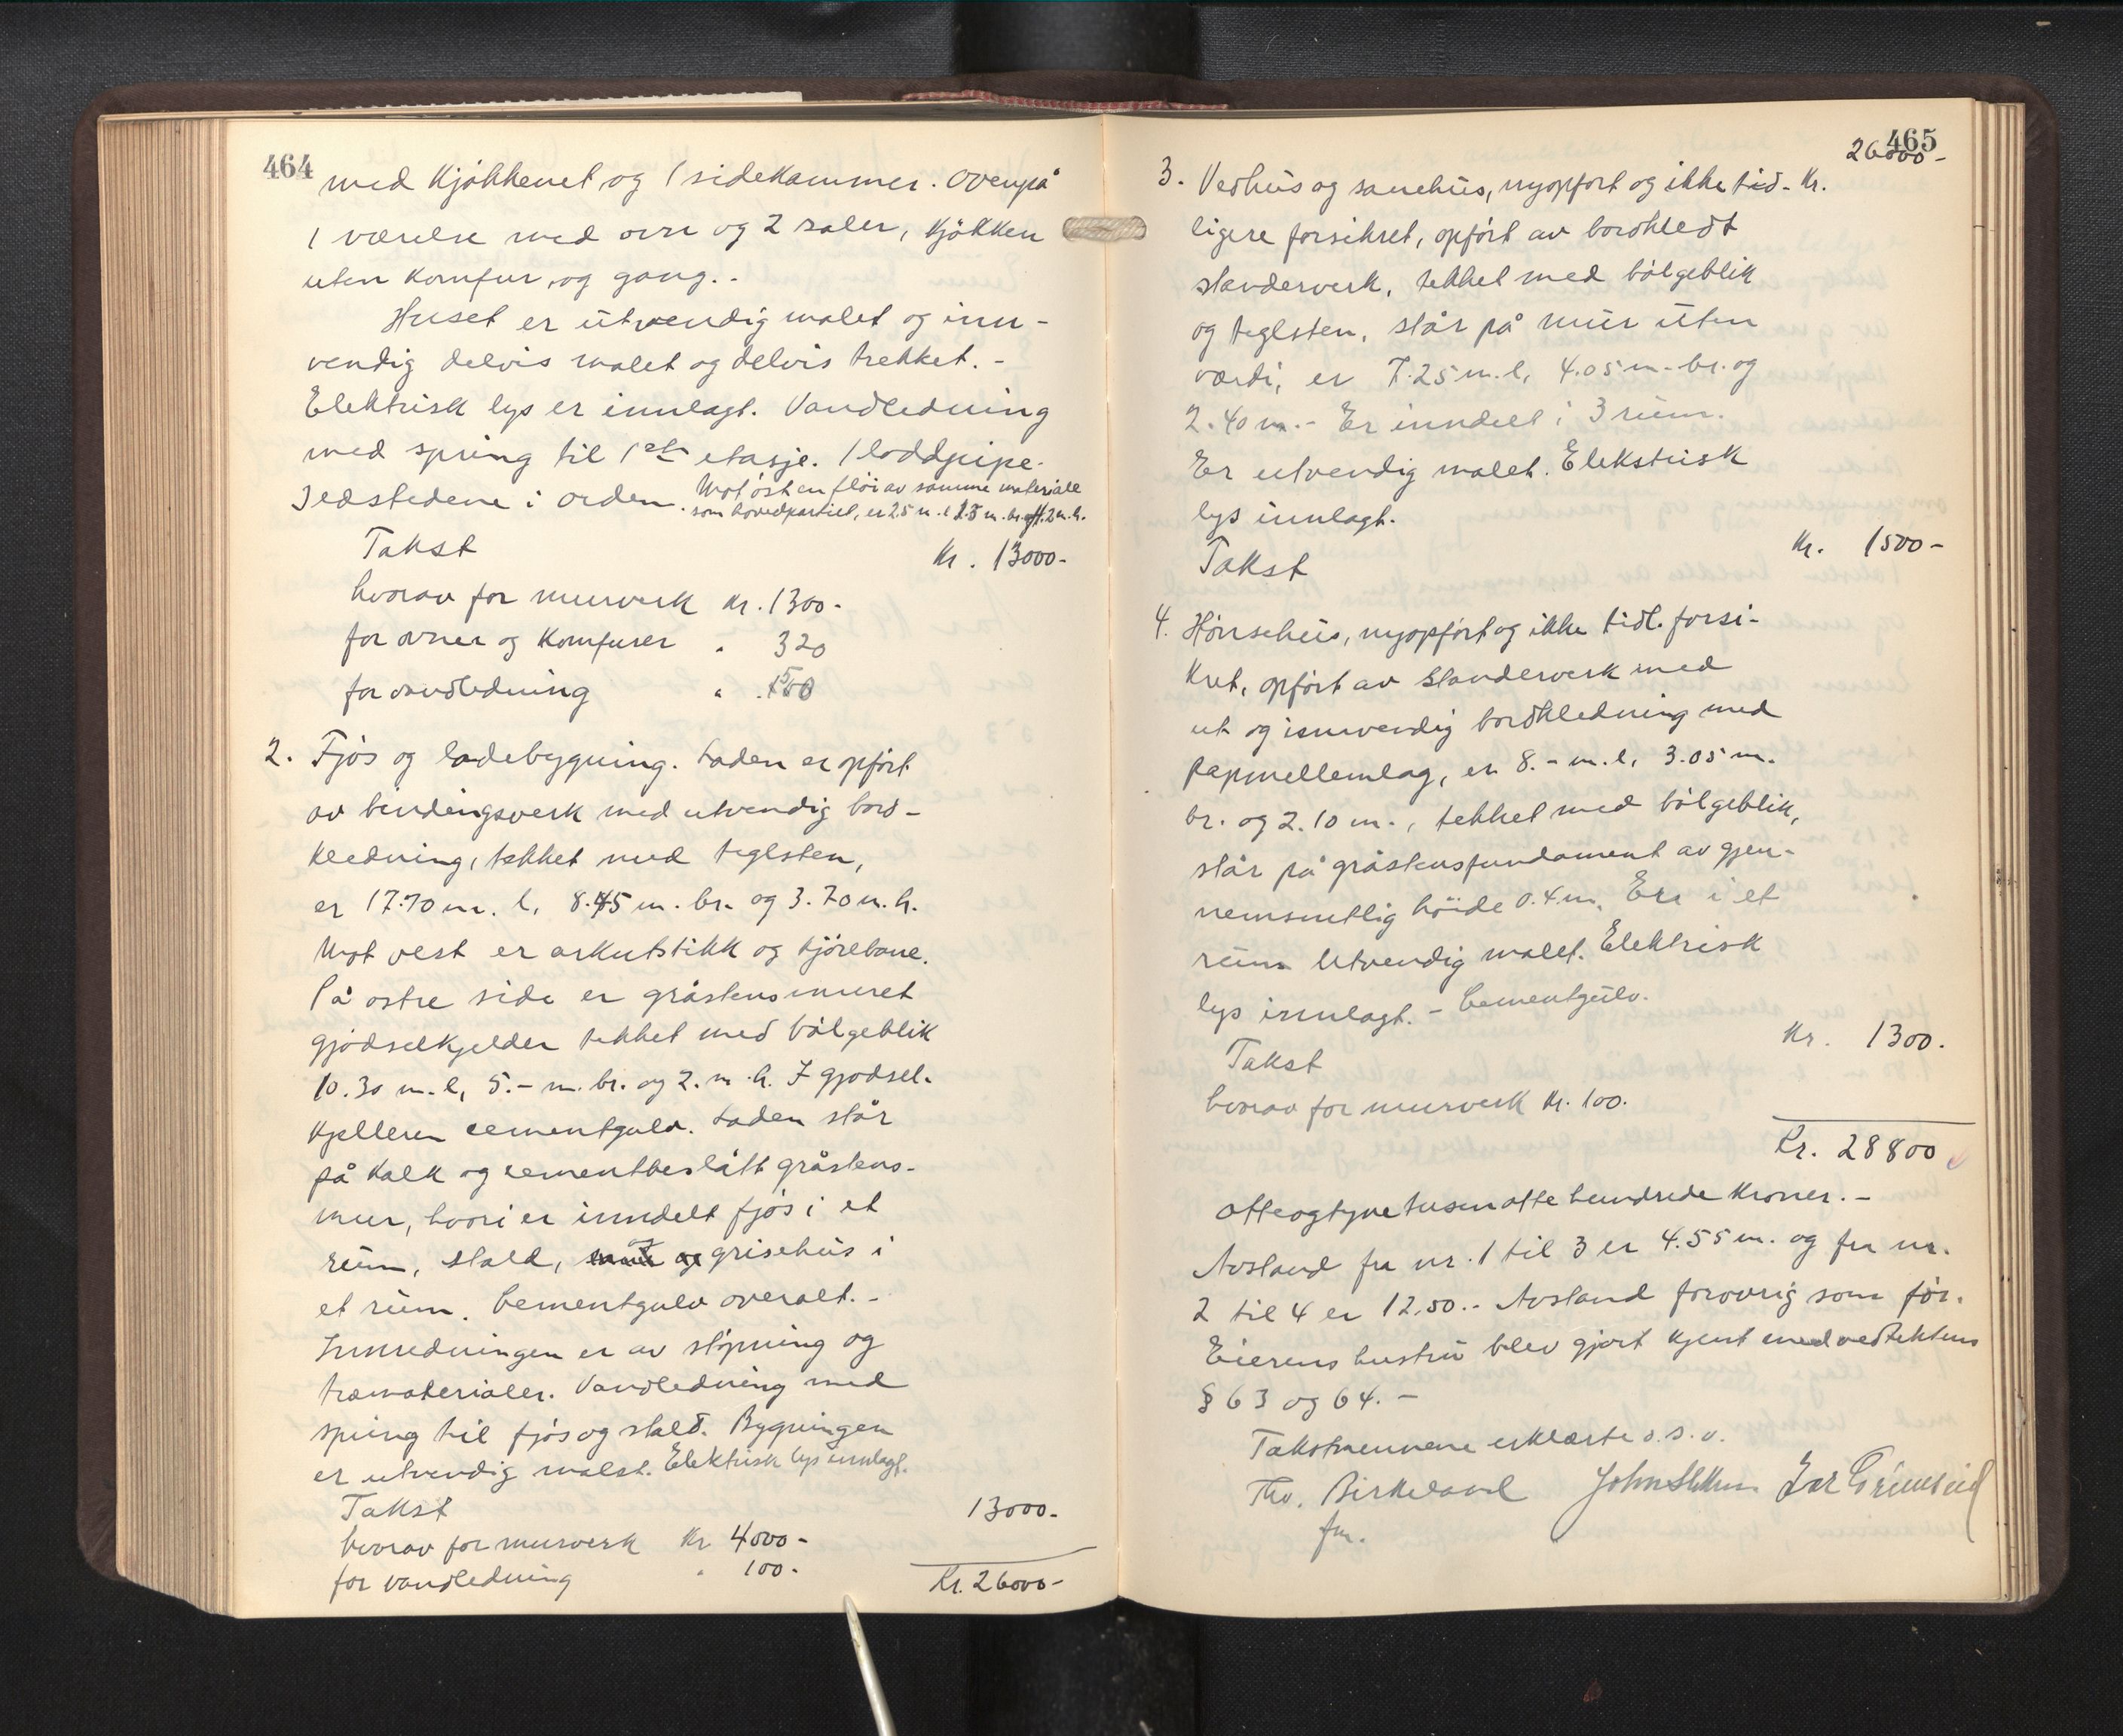 464
med kjøkkenet og 1 sidekammer. Ovenpå
1 værelse med ovn og 2 saler, kjøkken
uten komfur, og gang. -
Huset er utvendig malet og inn-
vendig delvis malet og delvis trekket. -
Elektrisk lys er innlagt. Vandledning
med spring til 1ste etasje. 1 loddpipe.
Ildstedene i orden. Mot øst en fløi av samme materiale
som hovedpartiet, er 2.5 m. l. 2.5 m. br. og 2 m. h.
Takst Kr. 13000-
hvorav for murverk Kr. 1300-
for ovner og komfurer " 320
for vandledning " 500
2. Fjøs og ladebygning. Laden er opført
av bindingsverk med utvendig bord-
kledning, tekket med teglsten,
er 17.70 m. l, 8.45 m. br. og 3.70 m. h.
Mot vest er arkutstikk og kjørebane.
På østre side er gråstensmuret
gjødselkjelder tekket med bølgeblik
10.30 m. l, 5.- m. br. og 2. m. h. I gjødsel-
kjelleren cementgulv. Laden står
på kalk og cementbeslått gråstens-
mur, hvori er inndelt fjøs i et
rum, stald, og grisehus i
et rum. Cementgulv overalt. -
Innredningen er av støpning og
træmaterialer. Vandledning med
spring til fjøs og stald. Bygningen
er utvendig malet. Elektrisk lys innlagt.
Takst 13000-
hvorav for murverk Kr 4000-
for vandledning " 100-
Kr. 26000-
465
26000-
3. Vedhus og sauehus, nyopført og ikke tid- Kr.
ligere forsikret, opført av bordkledt
stenderverk, tekket med bølgeblik
og teglsten, står på mur uten
værdi, er 7.25 m. l, 4.05 m. br. og
2.40 m. - Er inndelt i 3 rum.
Er utvendig malet. Elekstrisk
lys innlagt.
Takst Kr. 1500-
4. Hønsehus, nyopført og ikke tidl. forsi-
kret, opført av standerverk med
ut og innvendig bordkledning med
papmellemlag, er 8.- m. l, 3.05 m.
br. og 2.10 m., tekket med bølgeblik,
står på gråstensfundament av gjen-
nemsnitlig høide 0.4 m. Er i et
rum. Utvendig malet. Elektrisk
lys innlagt. - Cementgulv.
Takst Kr. 1300.
hvorav for murverk Kr. 100.
Kr. 28800
Otteogtyvetusenottehundrede kroner. -
Avstand fra nr. 1 til 3 er 4.55 m. og fra nr.
2 til 4 er 12.50. - Avstand forøvrig som før.
Eierens hustru blev gjort kjent med vedtektens
§ 63 og 64. -
Takstmennene erklærte o. s. v.
Tho. Birkeland Ivar Grimseid
fm.